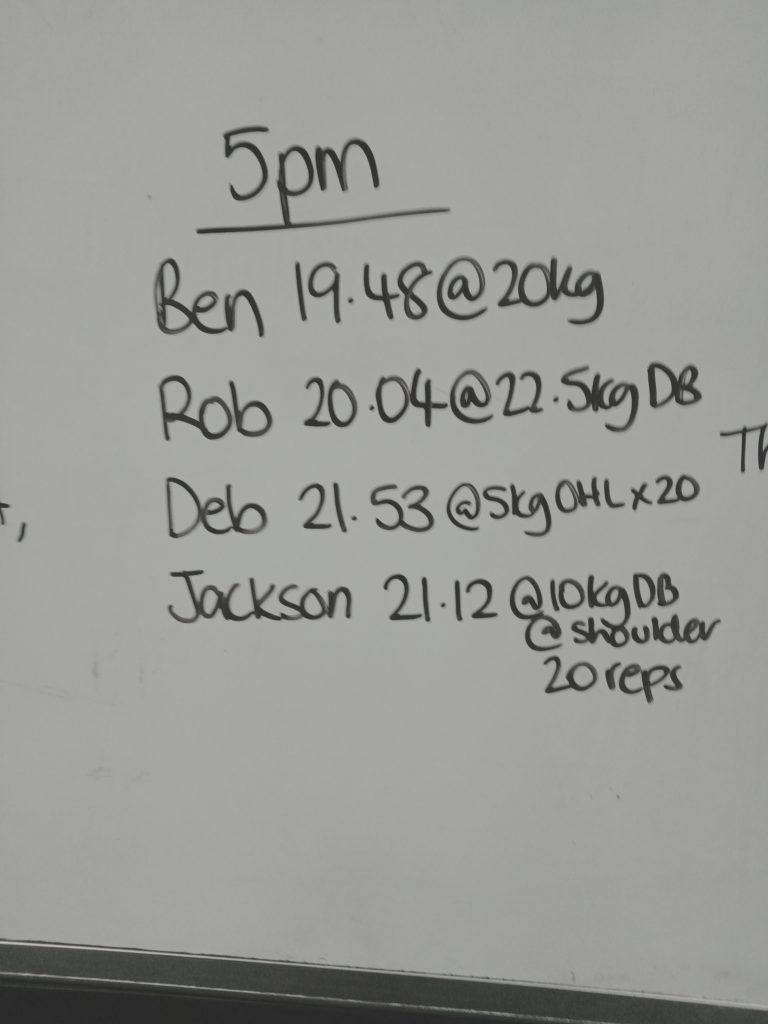 5pm
Ben 19.48@20kg
Rob 20.04@22.5kg DB
Deb 21.53 @5kg OHL x20
Jackson 21.12 @10kg DB
@shoulder
20 reps
Th